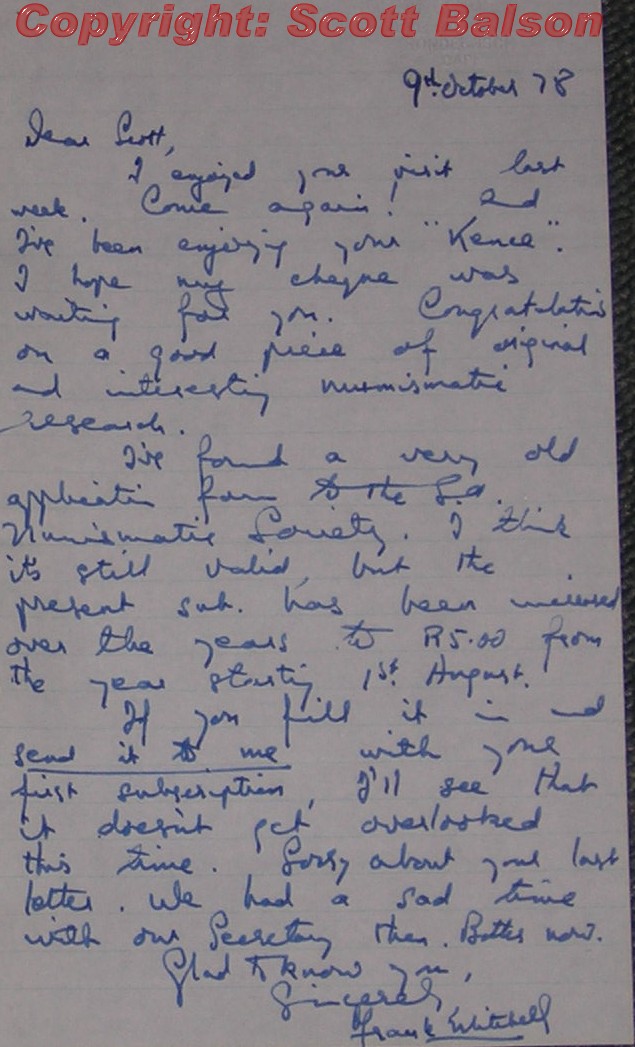 Copyright: Scott Balson
9th October 78
Dear Scott,
I enjoyed your visit last
week. Come again! And
I've been enjoying your "Kence".
I hope my cheque was
waiting for you. Congratulations
on a good piece of original
and interesting numismatic
research.
I've found a very old
application form to the S.A.
Numismatic Society. I think
it's still valid, but the
present sub. has been increased
over the years to R5.00 from
the year starting 1st August.
If you fill it in and
send it to me with your
first subscription, I'll see that
it doesn't get overlooked
this time. Sorry about your last
letter. We had a sad time
with our Secretary then. Better now.
Glad to know you,
Sincerely,
Frank Mitchell